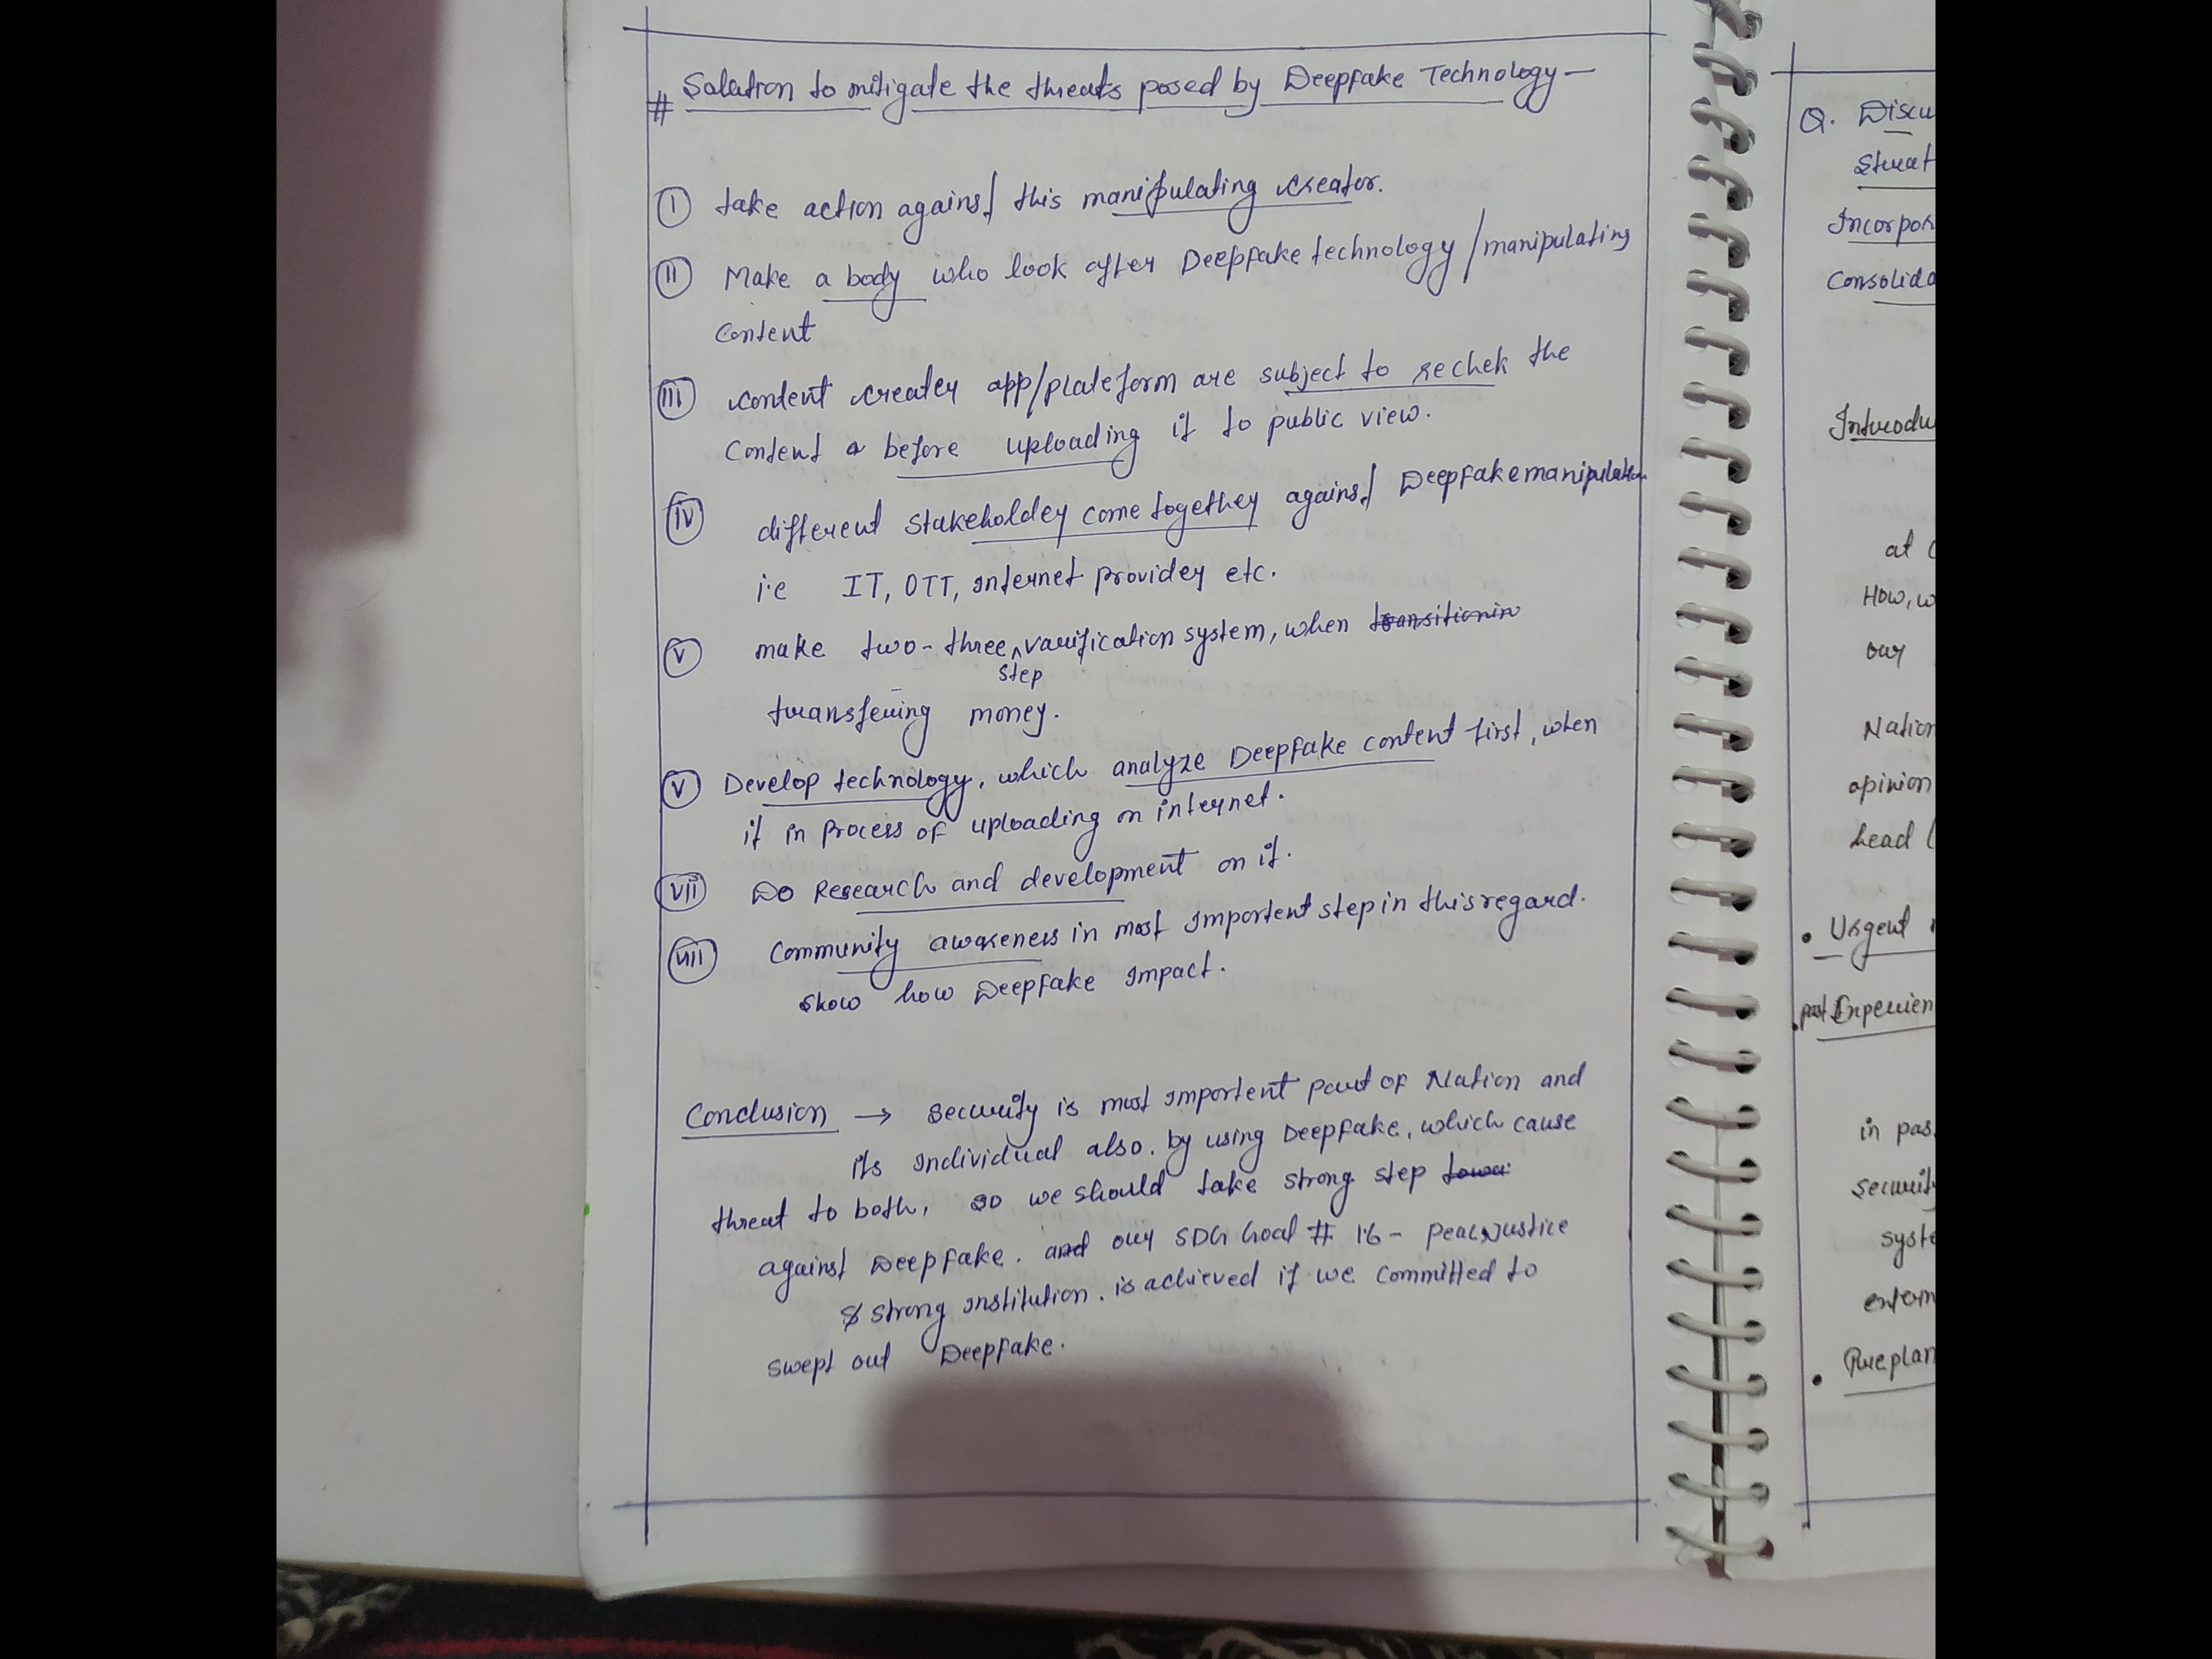 # Solution to mitigate the threats posed by Deepfake Technology —
I take action against this manipulating creator.
II Make a body who look after Deepfake technology / manipulating
Content
III content creater app/plateform are subject to rechek the
Content before uploading it to public view.
IV different stakeholder come together against Deepfake manipulation
i.e IT, OTT, internet provider etc.
V make two-three step varification system, when transitionin
transfering money.
V Develop technology, which analyze Deepfake content first, when
it in process of uploading on internet.
VII Do Research and development on it.
VIII Community awareness in most importent step in this regard.
Show how Deepfake impact.
Conclusion → Security is most importent part of Nation and
its individual also. by using Deepfake, which cause
threat to both, so we should take strong step towa
against Deepfake. and our SDG Goal # 16 - Peace, Justice
& strong institution. is achieved if we committed to
swept out Deepfake.
Q. Discu
Struat
Incorpor
Consolida
Introdu
at
How, w
our
Nation
opinion
head
• Urgent
• past Experien
in pas
security
syste
extern
• Preplan